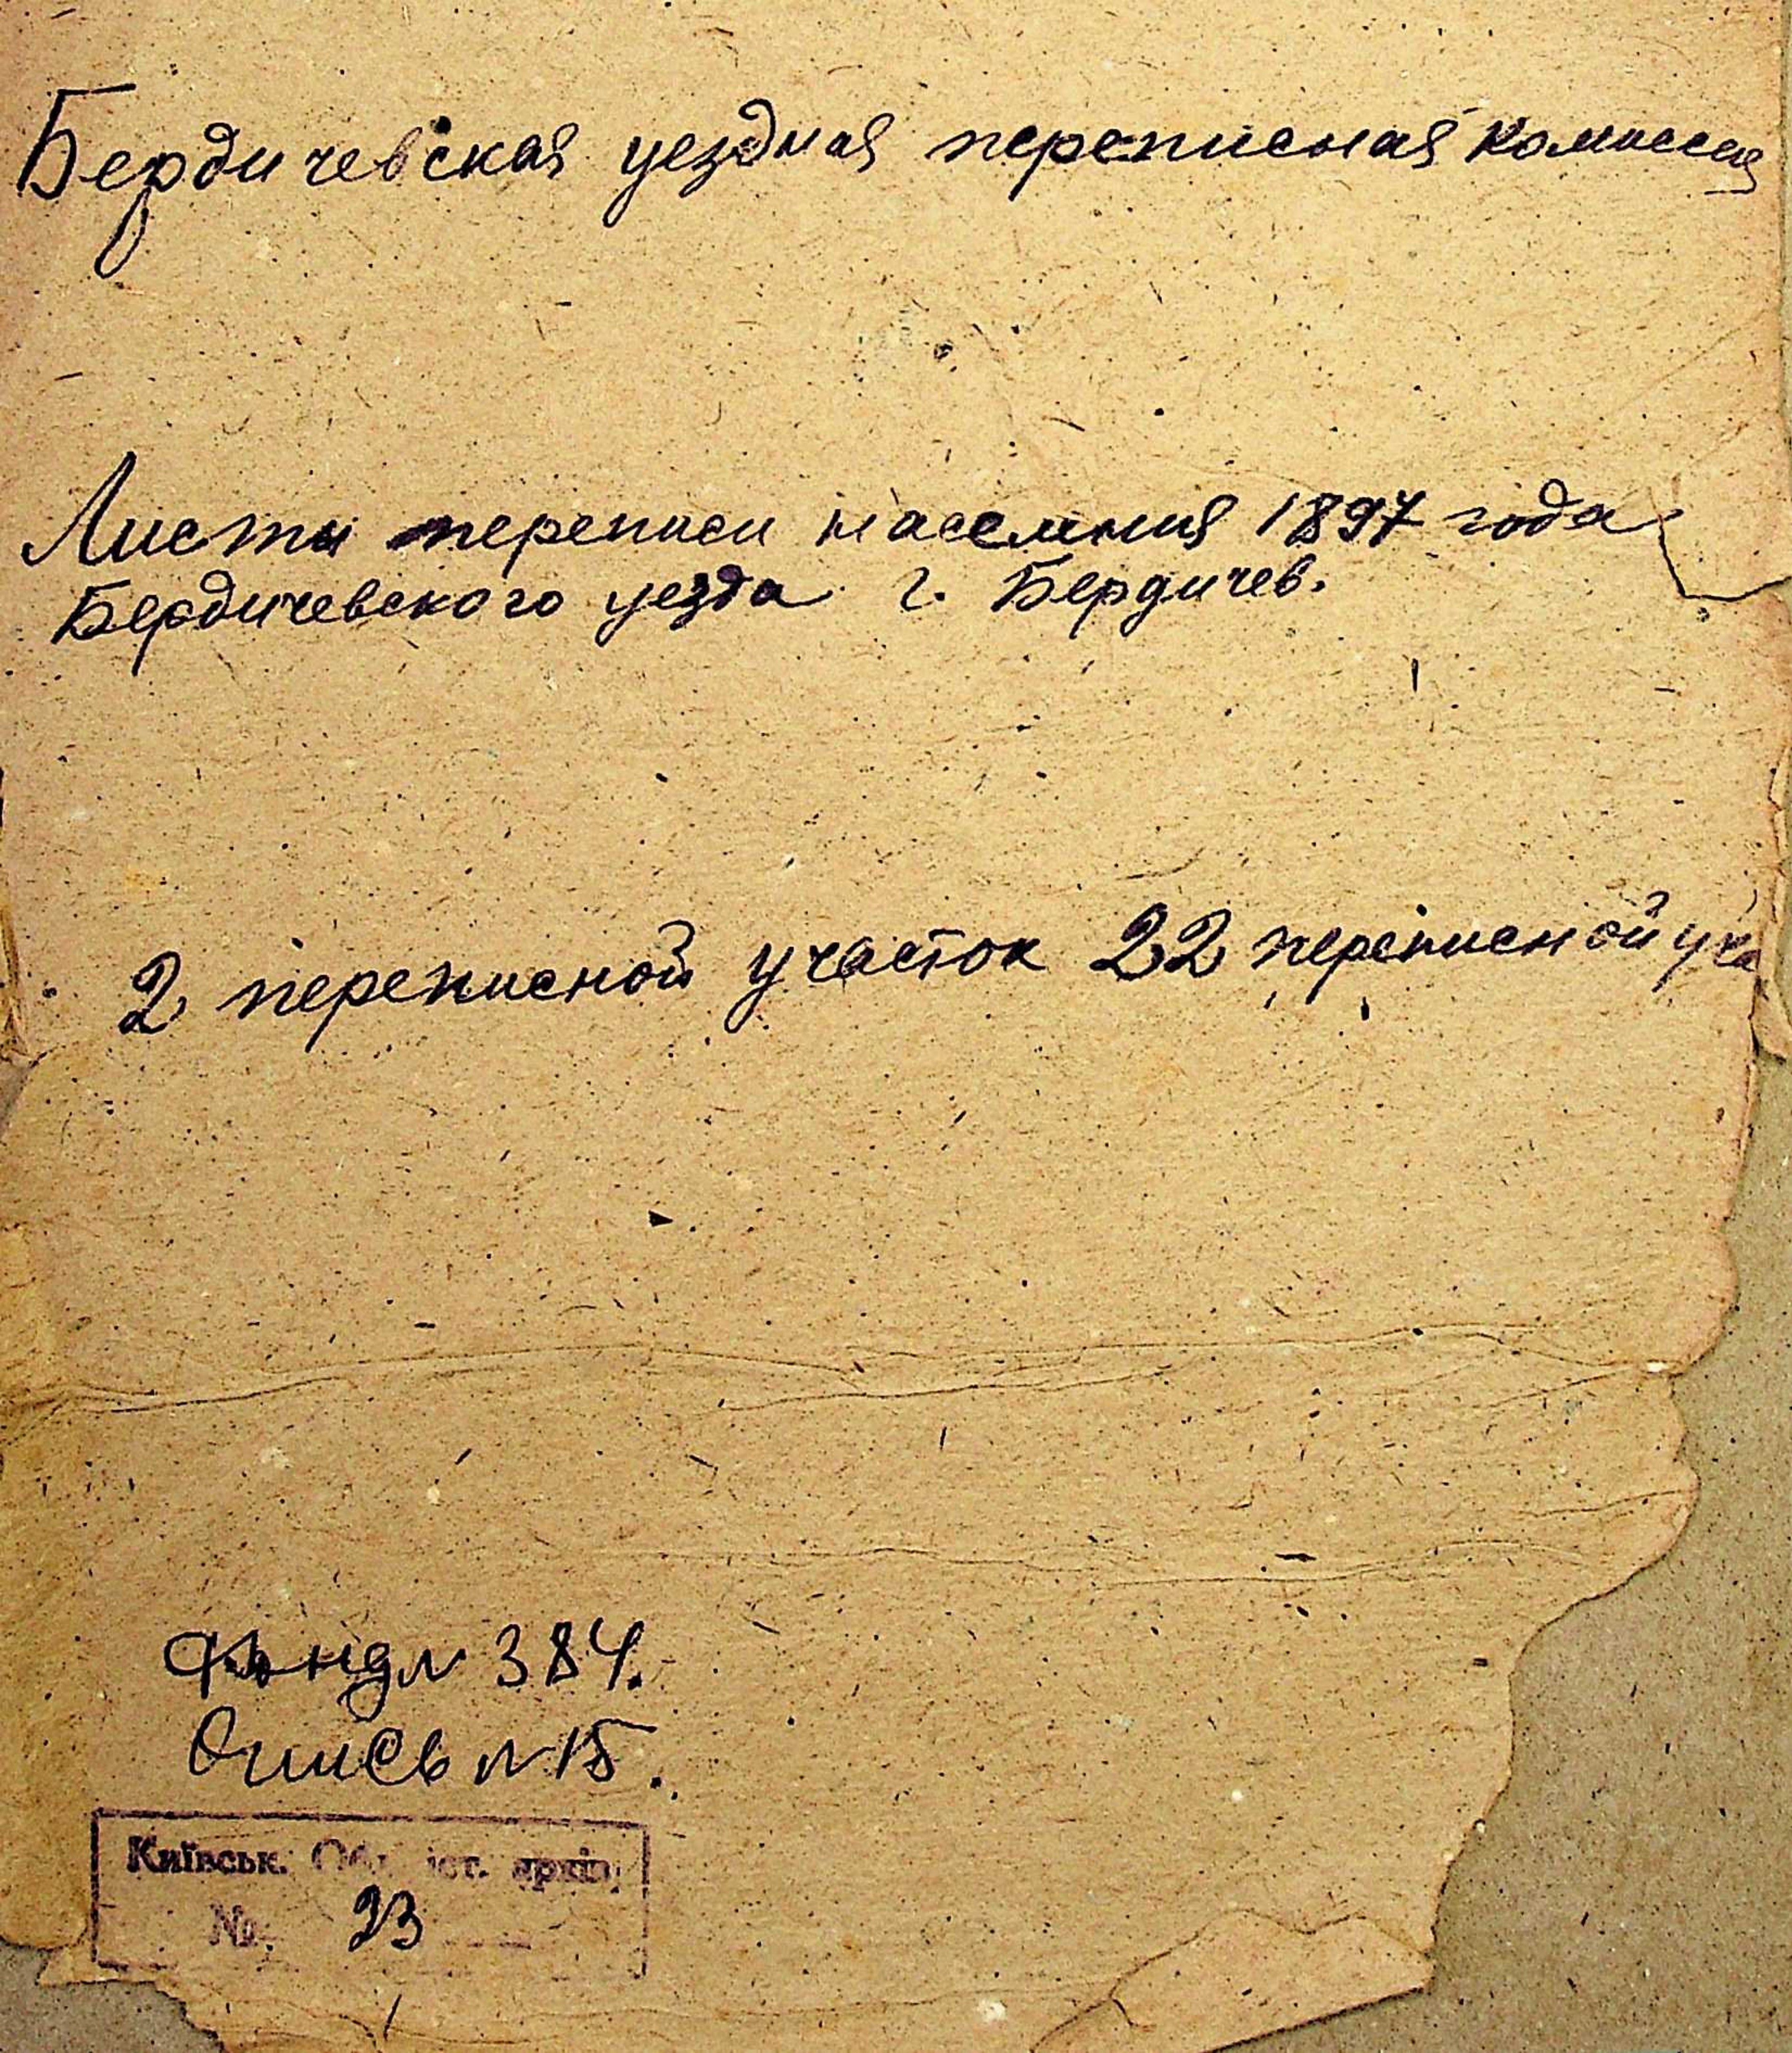 Бердичевская уездная переписная комиссия
Листы переписи населения 1897 года
Бердичевского уезда г. Бердичев.
2 переписной участок 22 переписной уча
Фонд № 384.
Опись № 15.
Київськ. іст. архів
№ 23